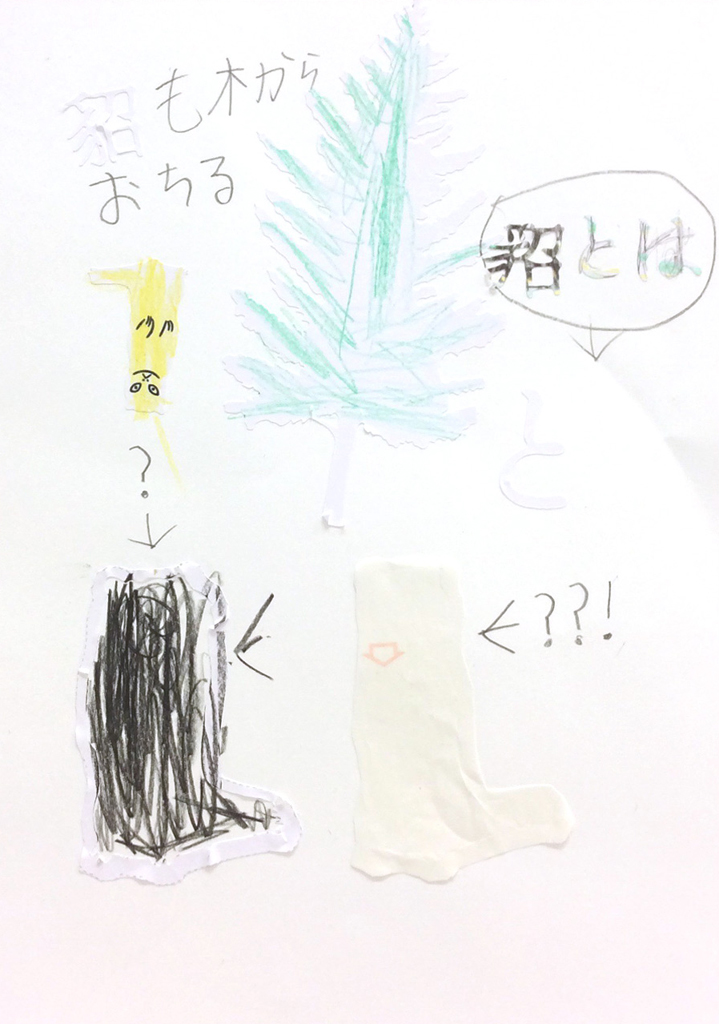 貂も木から
おちる
貂とは
と
?
??!